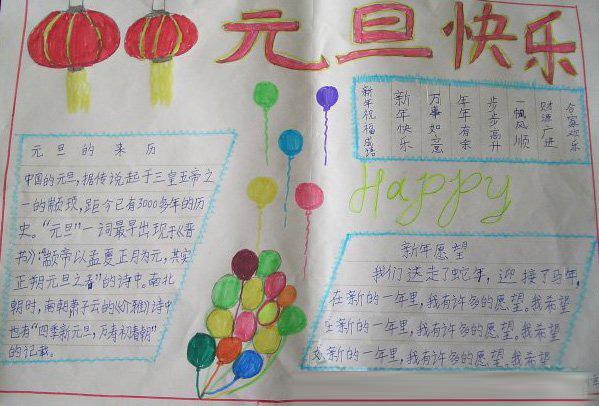 元旦快乐
新年祝福成语
新年快乐
万事如意
年年有余
步步高升
一帆风顺
财源广进
合家欢乐
Happy
元旦的来历
中国的元旦，据传说起于三皇五帝之
一的颛顼，距今已有3000多年的历
史。“元旦”一词最早出现于《晋
书》：“颛帝以孟夏正月为元，其实
正朔元旦之春”的诗中。南北
朝时，南朝萧子云的《介雅》诗中
也有“四季新元旦，万寿初春朝”
的记载。
新年愿望
我们送走了蛇年，迎接了马年，
在新的一年里，我有许多的愿望。我希望
在新的一年里，我有许多的愿望。我希望
新的一年里，我有许多的愿望。我希望